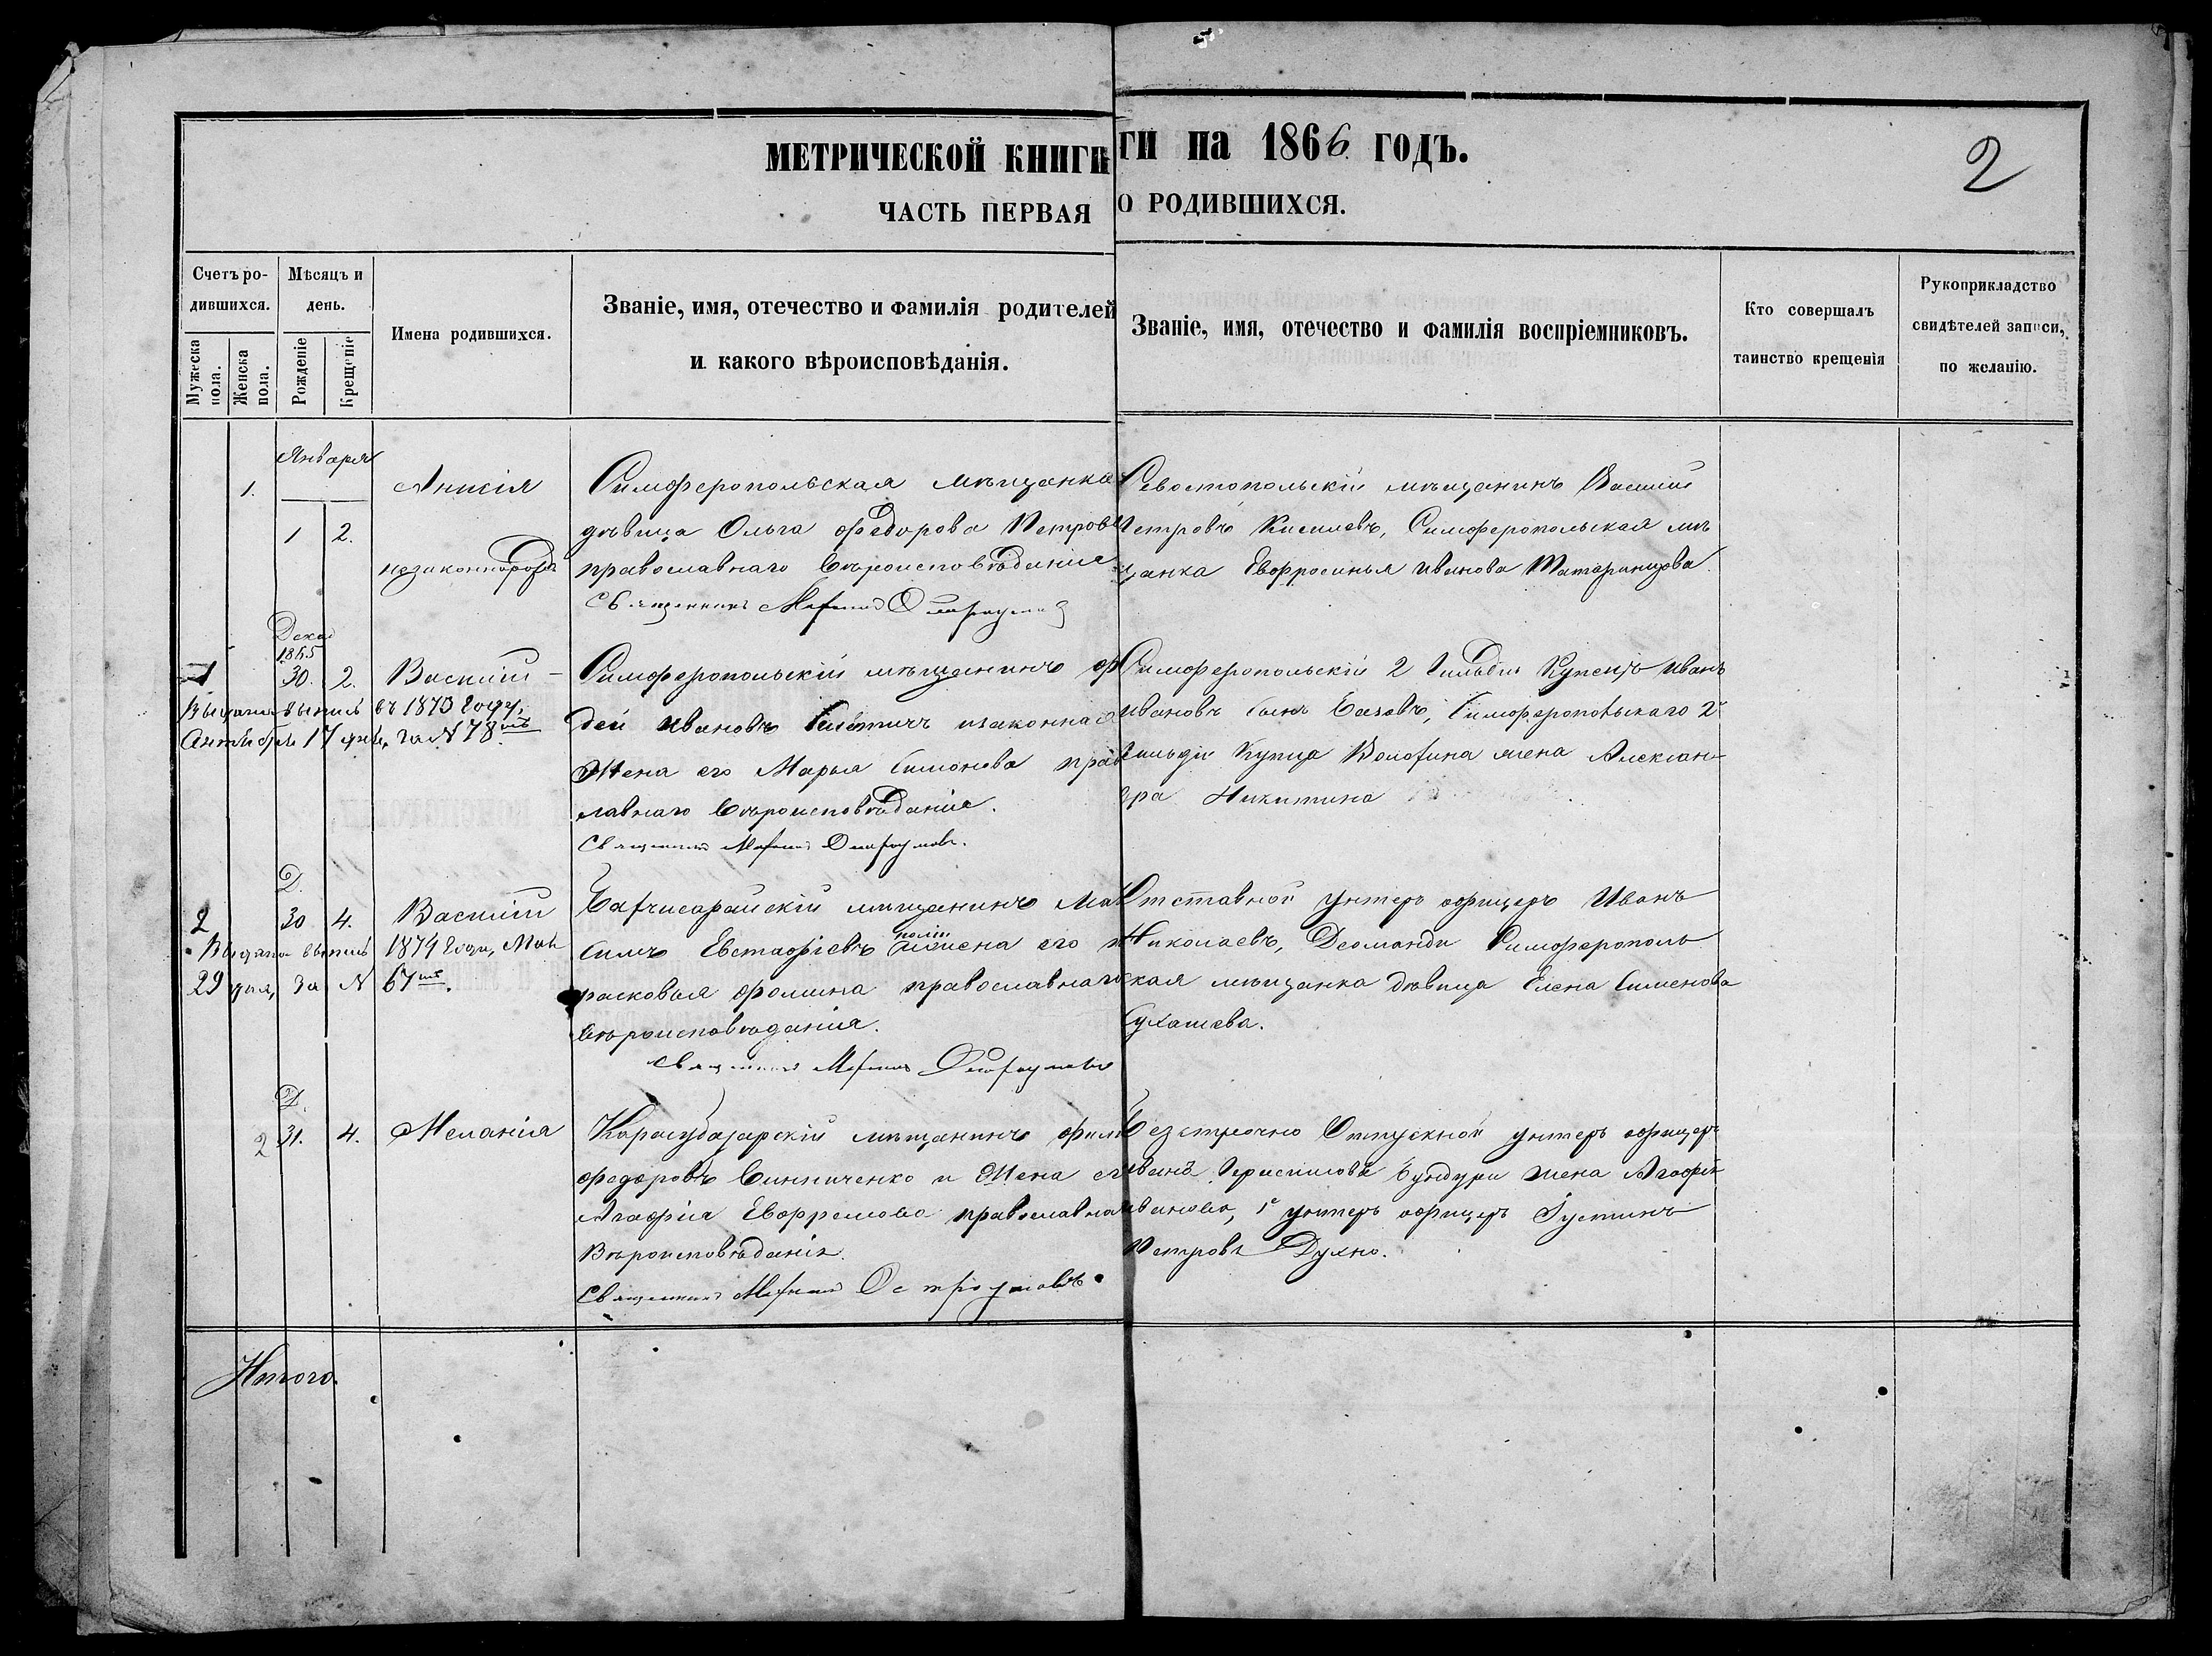 МЕТРИЧЕСКОЙ КНИГИ
ГИ на 1866 ГОДЪ.
2
ЧАСТЬ ПЕРВАЯ
О РОДИВШИХСЯ.
Счетъ ро-
дившихся.
Мужеска
пола.
Женска
пола.
Мѣсяцъ и
день.
Рожденіе
Крещеніе
Имена родившихся.
Званіе, имя, отечество и фамилія родителей
и какого вѣроисповѣданія.
Званіе, имя, отечество и фамилія воспріемниковъ.
Кто совершалъ
таинство крещенія
Рукоприкладство
свидѣтелей записи,
по желанію.
Января
1.
1
2.
Анисія
незаконнорожд
Симферопольская мѣщанка
дѣвица Ольга Федорова Петрова
православнаго вѣроисповѣданія
Священникъ
Севостопольскій мѣщанинъ Василій
Петровъ Киселевъ, Симферопольская мѣ
щанка Евфросинья Иванова Татаринцова.
Декаб
1865
1
30.
2.
Василій
Выдана выпись въ 1873 году,
17 дня, за N 78
Симферопольскій мѣщанинъ Ѳ
дей Ивановъ законная
жена его Марья Симонова прав
лавнаго вѣроисповѣданія.
Священникъ
Симферопольскій 2 гильдіи Купецъ Иванъ
Ивановъ сынъ Симферопольскаго 2й
гильдіи Купца жена Алексан-
дра Никитина
Д.
2
30
4.
Василій
Выдана выпись 1879 года, Мая
29 дня, за N 67
Бахчисарайскій мѣщанинъ Мак
симъ Евстафіевъ жена его п
расковья Фомина православнаго
вѣроисповѣданія.
Священникъ
Отставной унтеръ офицеръ Иванъ
Николаевъ, Симферополь
ская мѣщанка дѣвица Елена Сименова
Д.
2
31.
4.
Меланія
Карасубазарскій мѣщанинъ Фили
Федоровъ Винниченко и жена ег
Агафія Евфремова православна
Вѣроисповѣданія.
Священникъ Остроумовъ
Безсрочно Отпускной унтеръ офицеръ
Иванъ жена Агафія
Иванова, унтеръ офицеръ Іустинъ
Петровъ Духно.
Итого.